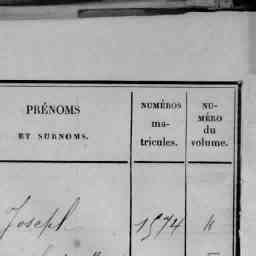 PRÉNOMS
ET SURNOMS.
NUMÉROS
ma-
tricules.
NU-
MÉRO
du
volume.
Joseph 1574